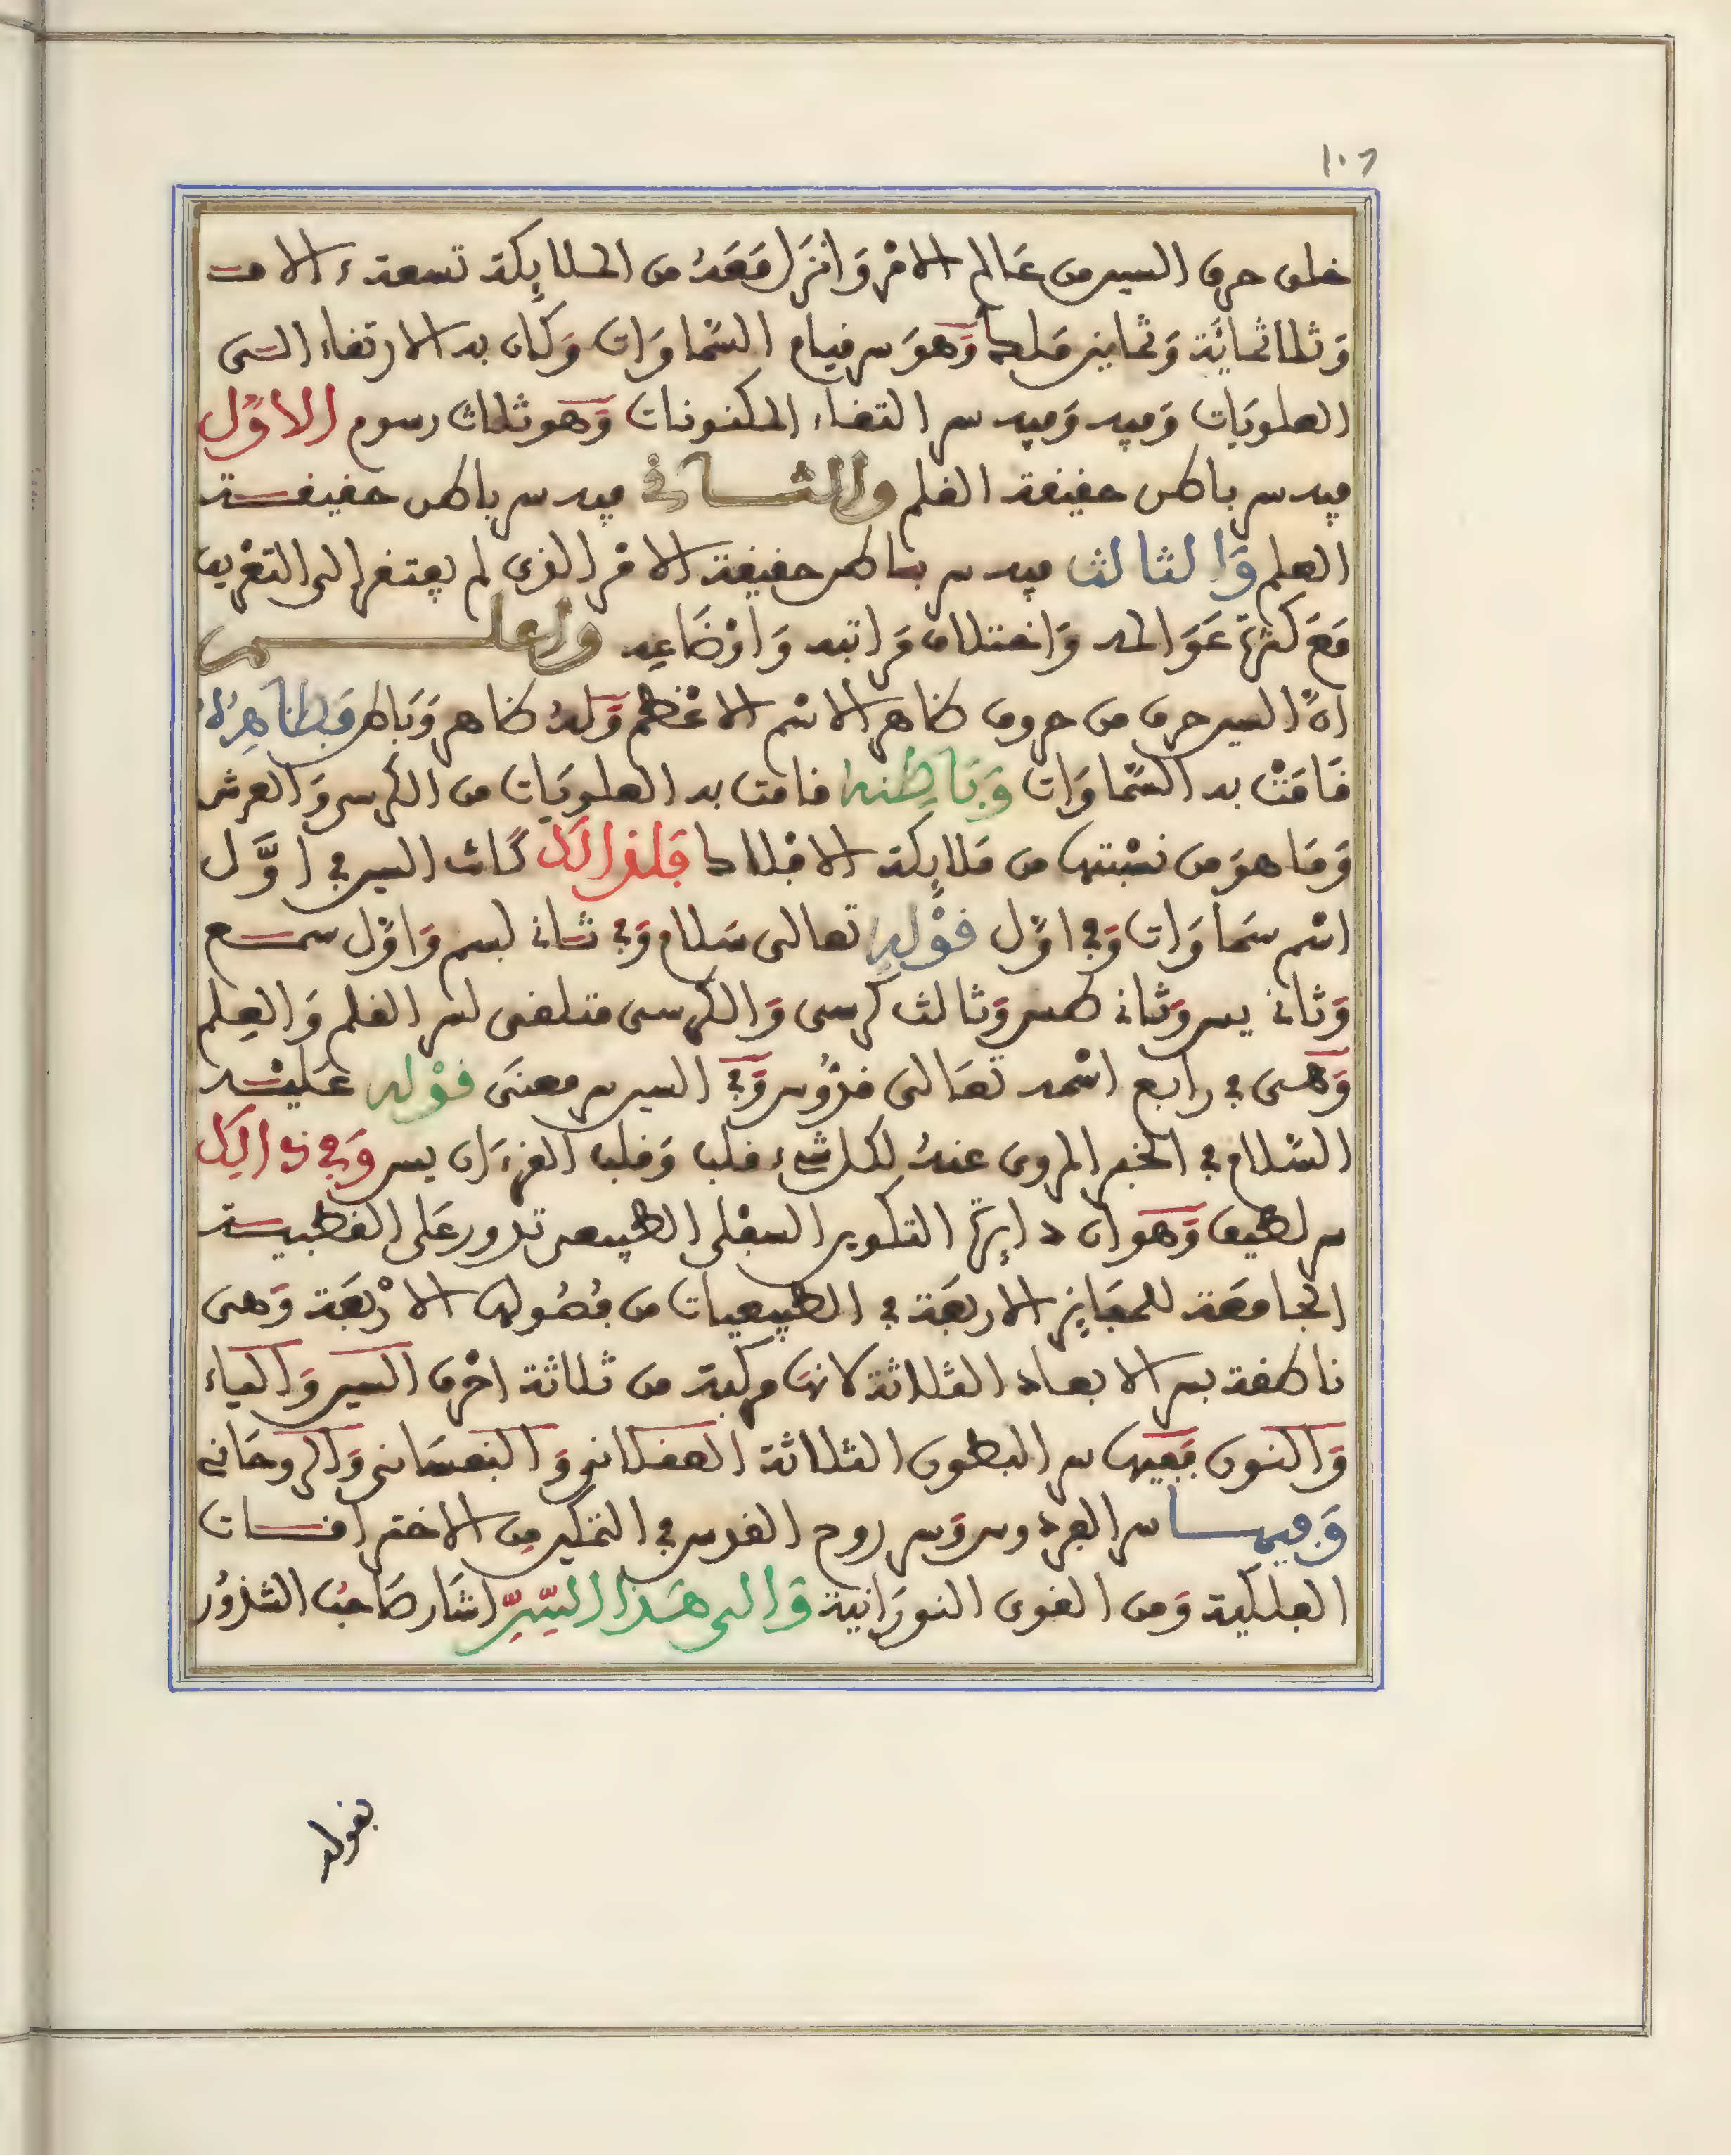 ١٠٦
خلق حرف السين من عالم الامْر وَانزَل مَعَهُ من الملايكة تسعة ءالاف
وَثلاثمايَة وَثمانين مَلكا وَهوَ سر قيام السّماوَات وَكان به الارتفاء الى
العلويَات وَفيه وَفيه سر التفاء المكنونات وَهو ثلاث رسوم الاوّل
فيه سر باطن حقيقة القلم والثاني فيه سر باطن حقيقة
العلم وَالثالث فيه سر باطن حقيقة الامْر الذى لم يفتقر الى التعْريف
مَعَ كثرة عَوَالمه وَاختلاف مَراتبه وَاوْضَاعِه واعلم
انّ السين حرف من حروف ظاهر الاسْم الاعْظم وَلهُ ظاهر وَباطن فبظاهِرِه
قَامَتْ به السّماوَات وَبَاطِنه قامت به العلويَات من الكرسي وَالعرش
وَمَا هوَ من نسْبتها من مَلايكة الافلاك فَلذالك كانت السين في اوَّل
اسْم سَماوَات وَفي اوّل قوْله تعالى سَلام وَفي ثاني لبسم وَاوّل سمع
وَثاني يس وَثاني طس وَثالث كرسى وَالكرسى متلقى لسر القلم وَالعِلم
وَهى في رابع اسْمه تعَالى قدّوُس وَفي السين سر معنَى قوْله عَليْه
السّلام في الخبر المروى عنهُ لكل شىء قلب وَقلب القرءَان يس وَفي ذالِك
سر لطيف وَهو ان دايرة التكوير السفلى الطبيعى تدور عَلى القطبية
الجامعَة للحقايز الاربعَة في الطبيعيات من فصُولها الارْبعَة وَهى
ناطقة بسر الابعاد الثلاثة لانها مركبة من ثلاثة احْرف السين وَالياء
وَالنون فَفيها سر البطون الثلاثة العقلاني وَالنفسَاني وَالروحَاني
وَفيها سر الفردوس وَسر روح القدس في التمكين من الاختراقات
الفلكية وَمن القوى النورَانية وَالى هَذا السِّرِّ اشَار صَاحبُ الشذوُر
بقوله